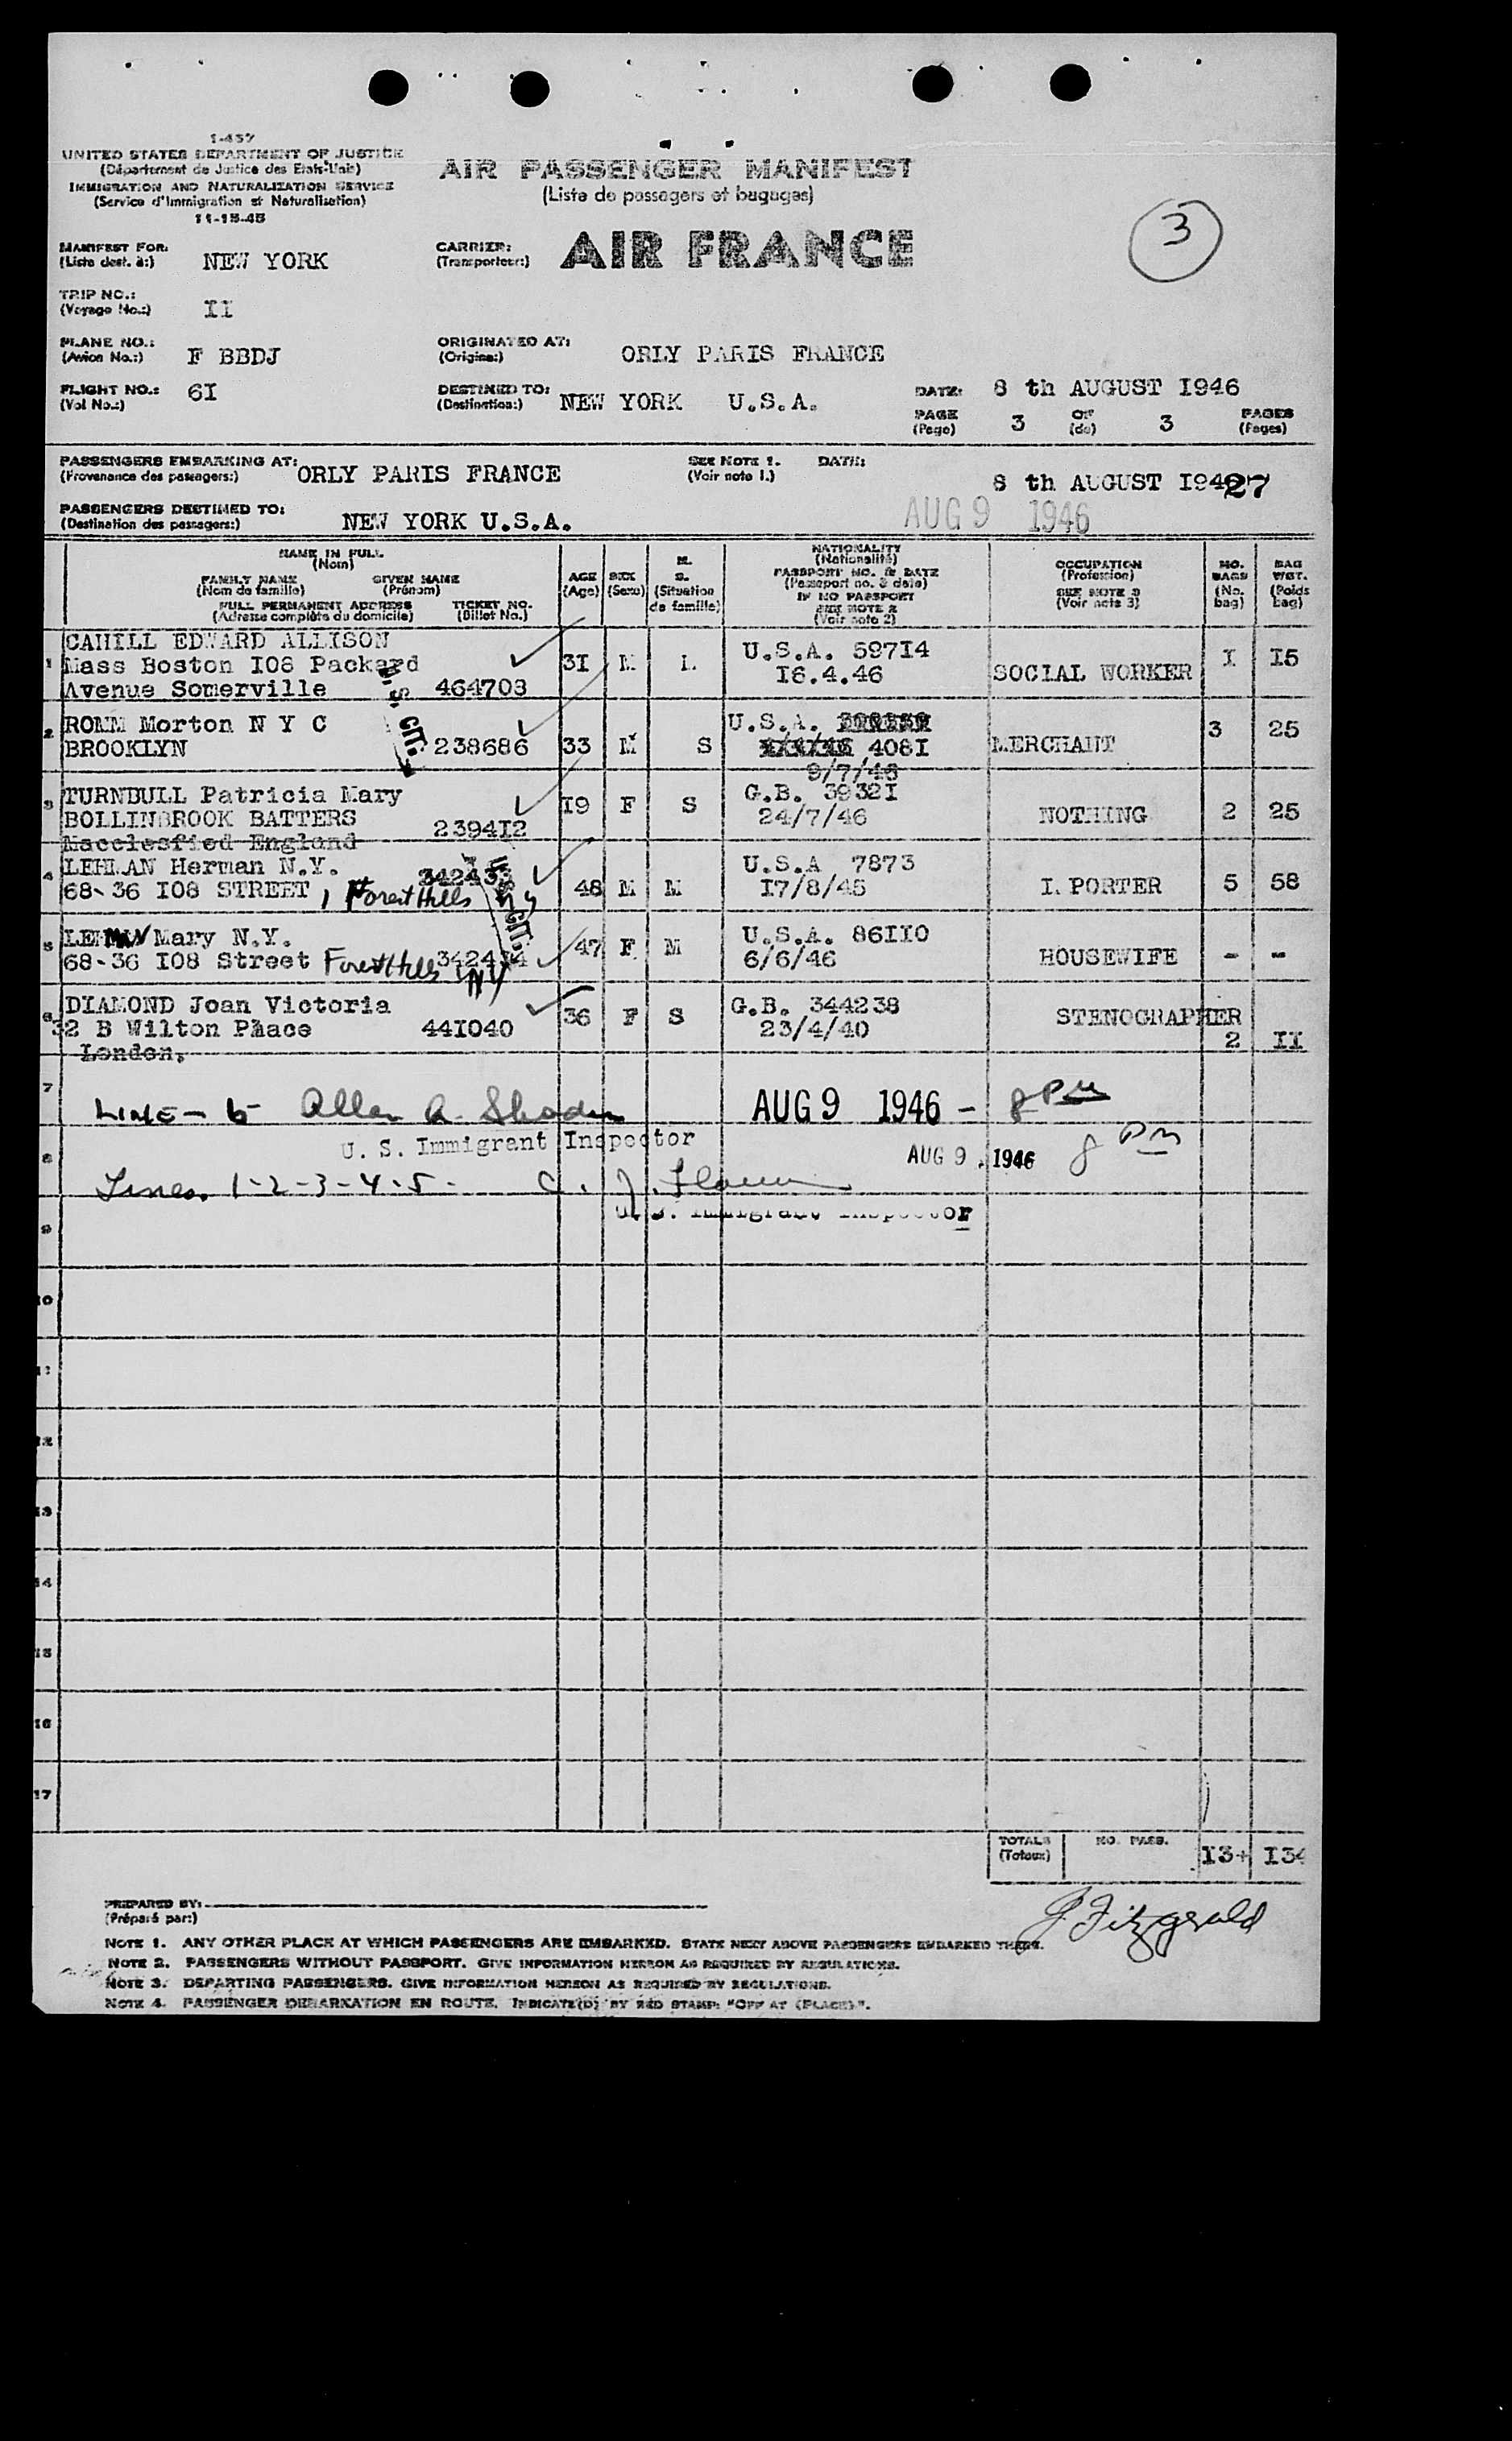 1-457
UNITED STATES DEPARTMENT OF JUSTICE
(Département de Justice des Etats-Unis)
IMMIGRATION AND NATURALIZATION SERVICE
(Service d'Immigration et Naturalisation)
11-15-45
AIR PASSENGER MANIFEST
(Liste de passagers et bagages)
3
MANIFEST FOR: NEW YORK
(Liste dest. à:)
CARRIER: AIR FRANCE
(Transporteur:)
TRIP NO.: II
(Voyage No.:)
PLANE NO.: F BBDJ
(Avion No.:)
ORIGINATED AT: ORLY PARIS FRANCE
(Origine:)
FLIGHT NO.: 6I
(Vol No.:)
DESTINED TO: NEW YORK U.S.A.
(Destination:)
DATE: 8 th AUGUST I946
PAGE 3 OF 3 PAGES
(Page) (de) (Pages)
PASSENGERS EMBARKING AT: ORLY PARIS FRANCE
(Provenance des passagers:)
SEE NOTE 1. DATE: 8 th AUGUST I946
(Voir note 1.)
27
PASSENGERS DESTINED TO: NEW YORK U.S.A.
(Destination des passagers:)
AUG 9 1946
NAME IN FULL
(Nom)
FAMILY NAME GIVEN NAME
(Nom de famille) (Prénom)
FULL PERMANENT ADDRESS TICKET NO.
(Adresse complète du domicile) (Billet No.)
AGE
(Age)
SEX
(Sexe)
M.
S.
(Situation
de famille)
NATIONALITY
(Nationalité)
PASSPORT NO. & DATE
(Passeport no. & date)
IF NO PASSPORT
SEE NOTE 2
(Voir note 2)
OCCUPATION
(Profession)
SEE NOTE 3
(Voir note 3)
NO.
BAGS
(No.
bag)
BAG
WGT.
(Poids
bag)
1 CAHILL EDWARD ALLISON
Mass Boston I08 Packard 3I M U.S.A. 597I4 I I5
Avenue Somerville 464703 I6.4.46 SOCIAL WORKER
U.S. CIT.
2 ROMM Morton N Y C U.S.A. 3 25
BROOKLYN 238686 33 M S 408I MERCHANT
9/7/46
3 TURNBULL Patricia Mary I9 F S G.B. 3932I
BOLLINBROOK BATTERS 2394I2 24/7/46 NOTHING 2 25
Macclesfied England
4 LEHMAN Herman N.Y. 342433 U.S.A 7873
68-36 I08 STREET, Forest Hills 48 M M I7/8/45 I. PORTER 5 58
U.S. CIT.
5 LEHMAN Mary N.Y. 47 F M U.S.A. 86II0
68-36 I08 Street Forest Hills NY 342434 6/6/46 HOUSEWIFE - -
6 DIAMOND Joan Victoria 36 F S G.B. 344238 STENOGRAPHER
32 B Wilton Place 44I040 23/4/40 2 II
London,
7
LINE - 6 Allen A. AUG 9 1946 - 8 PM
U. S. Immigrant Inspector
8
AUG 9, 1946 8 PM
Lines. 1-2-3-4-5- C. J.
U. S. Immigrant Inspector
9
10
11
12
13
14
15
16
17
TOTALS NO. PASS. I3+ I34
(Totaux)
PREPARED BY:
(Préparé par:)
J Fitzgerald
NOTE 1. ANY OTHER PLACE AT WHICH PASSENGERS ARE EMBARKED. STATE NEXT ABOVE PASSENGERS EMBARKED THERE.
NOTE 2. PASSENGERS WITHOUT PASSPORT. GIVE INFORMATION HEREON AS REQUIRED BY REGULATIONS.
NOTE 3. DEPARTING PASSENGERS. GIVE INFORMATION HEREON AS REQUIRED BY REGULATIONS.
NOTE 4. PASSENGER DEBARKATION EN ROUTE. INDICATE(D) BY RED STAMP: "OFF AT (PLACE)".